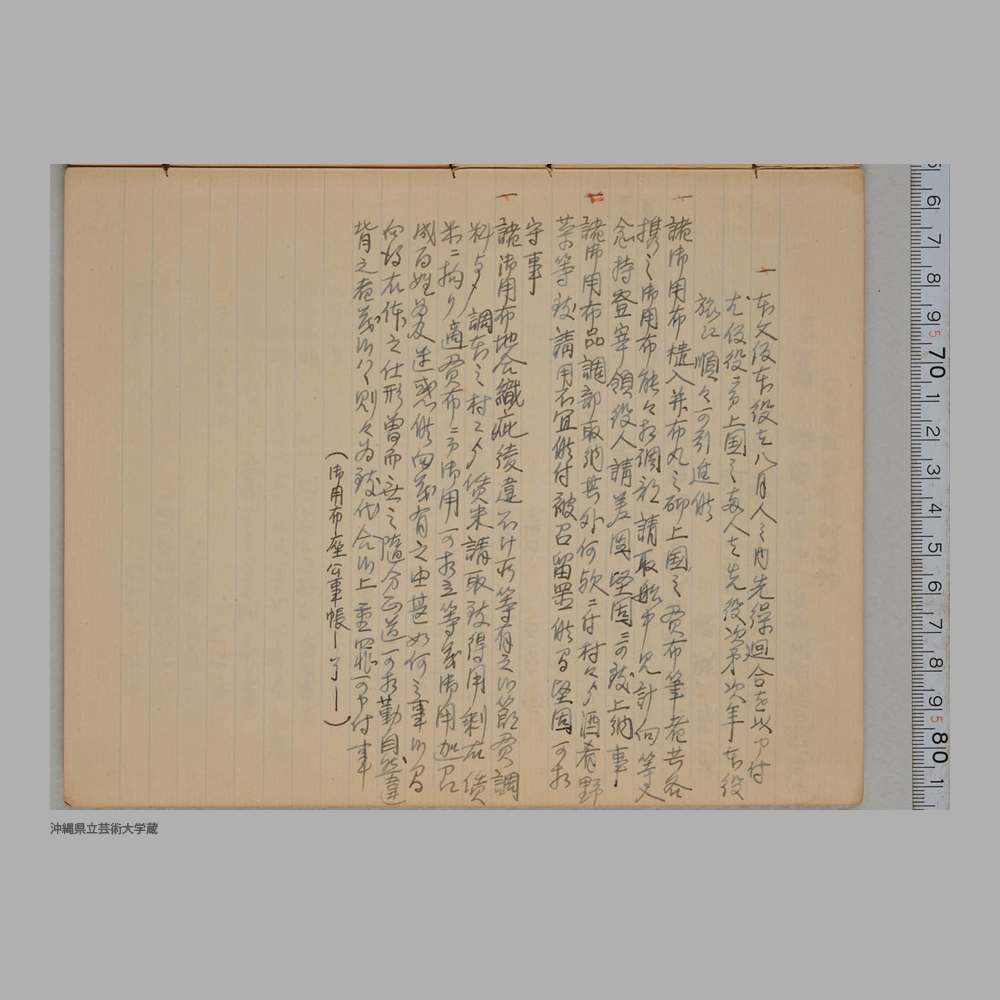 一
本文仮本役を八月人之内先繰廻合を以申付
尤仮役之方上国之毎人を先役次第次年本役
旅に順々可引進候
一
諸御用布積入并布丸之砌上国之貢布筆者共各
携之御用布能々相調部請取船中見計向等入
念持登宰領役人請差図堅固ニ可致上納事
一
諸御用布品調部取納其外何欤ニ付村々〆酒肴野
菜等致請用不宜候付被召留置候間堅固可相
守事
一
諸御用布地合織疵後違不仕所等有之候節貢調
料〆調方之村々〆償米請取致得用剰左償
米ニ拘り適貢布ニ而御用可相立等茂御用迦召
成百姓為及迷惑候向茂有之由甚如何之事候間
向後右体之仕形曽而無之随分正道可相勤自然違
背之者茂候ハヽ則々為致代合候上重罪可申付事
(御用布座公事帳ー了ー)
沖縄県立芸術大学蔵
6 7 8 9 5 70 1 2 3 4 5 6 7 8 9 5 80 1